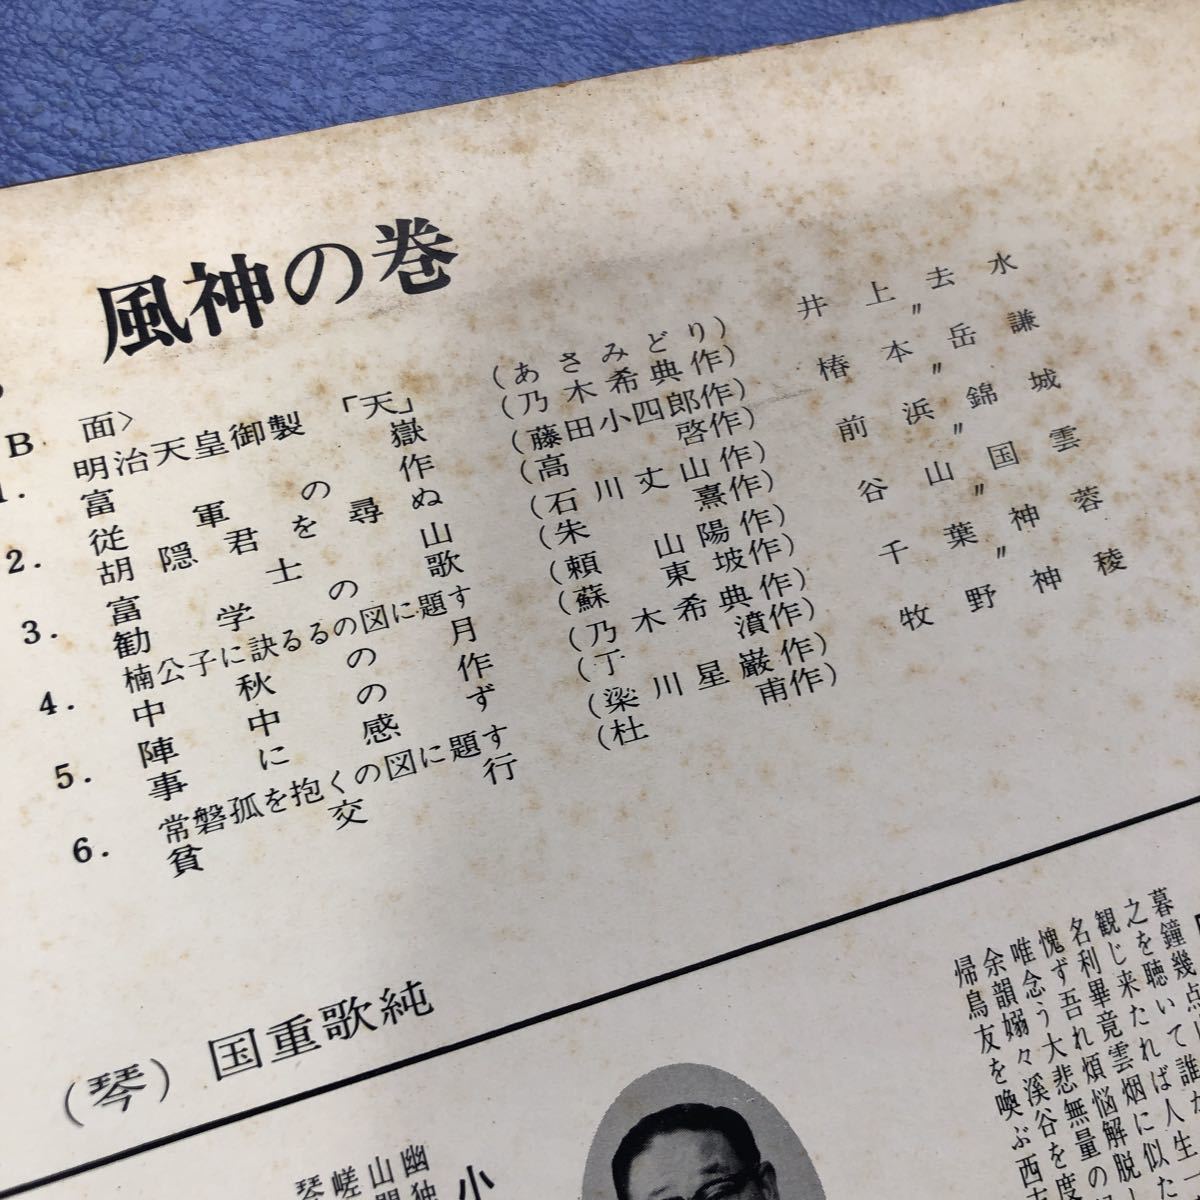 風神の巻
B面〉
1. 明治天皇御製「天」 (あさみどり) 井上去水
富嶽 (乃木希典作) 〃
2. 従軍の作 (藤田小四郎作) 椿本岳謙
胡隠君を尋ぬ (高啓作) 〃
3. 富士山 (石川丈山作) 前浜錦城
勧学の歌 (朱熹作) 〃
4. 楠公子に訣るるの図に題す (頼山陽作) 谷山国雲
中秋の月 (蘇東坡作) 〃
5. 陣中の作 (乃木希典作) 千葉神蓉
事に感ず (丁濆作) 〃
6. 常磐孤を抱くの図に題す (梁川星巌作) 牧野神稜
貧交行 (杜甫作)
(琴) 国重歌純
暮鐘幾点
之を聴いて誰か
観じ来たれば人生
名利畢竟雲烟に似た
愧ず吾れ煩悩解脱
唯念う大悲無量の
余韻嫋々溪谷を度
帰鳥友を喚ぶ西
小
幽独
山
嵯
琴